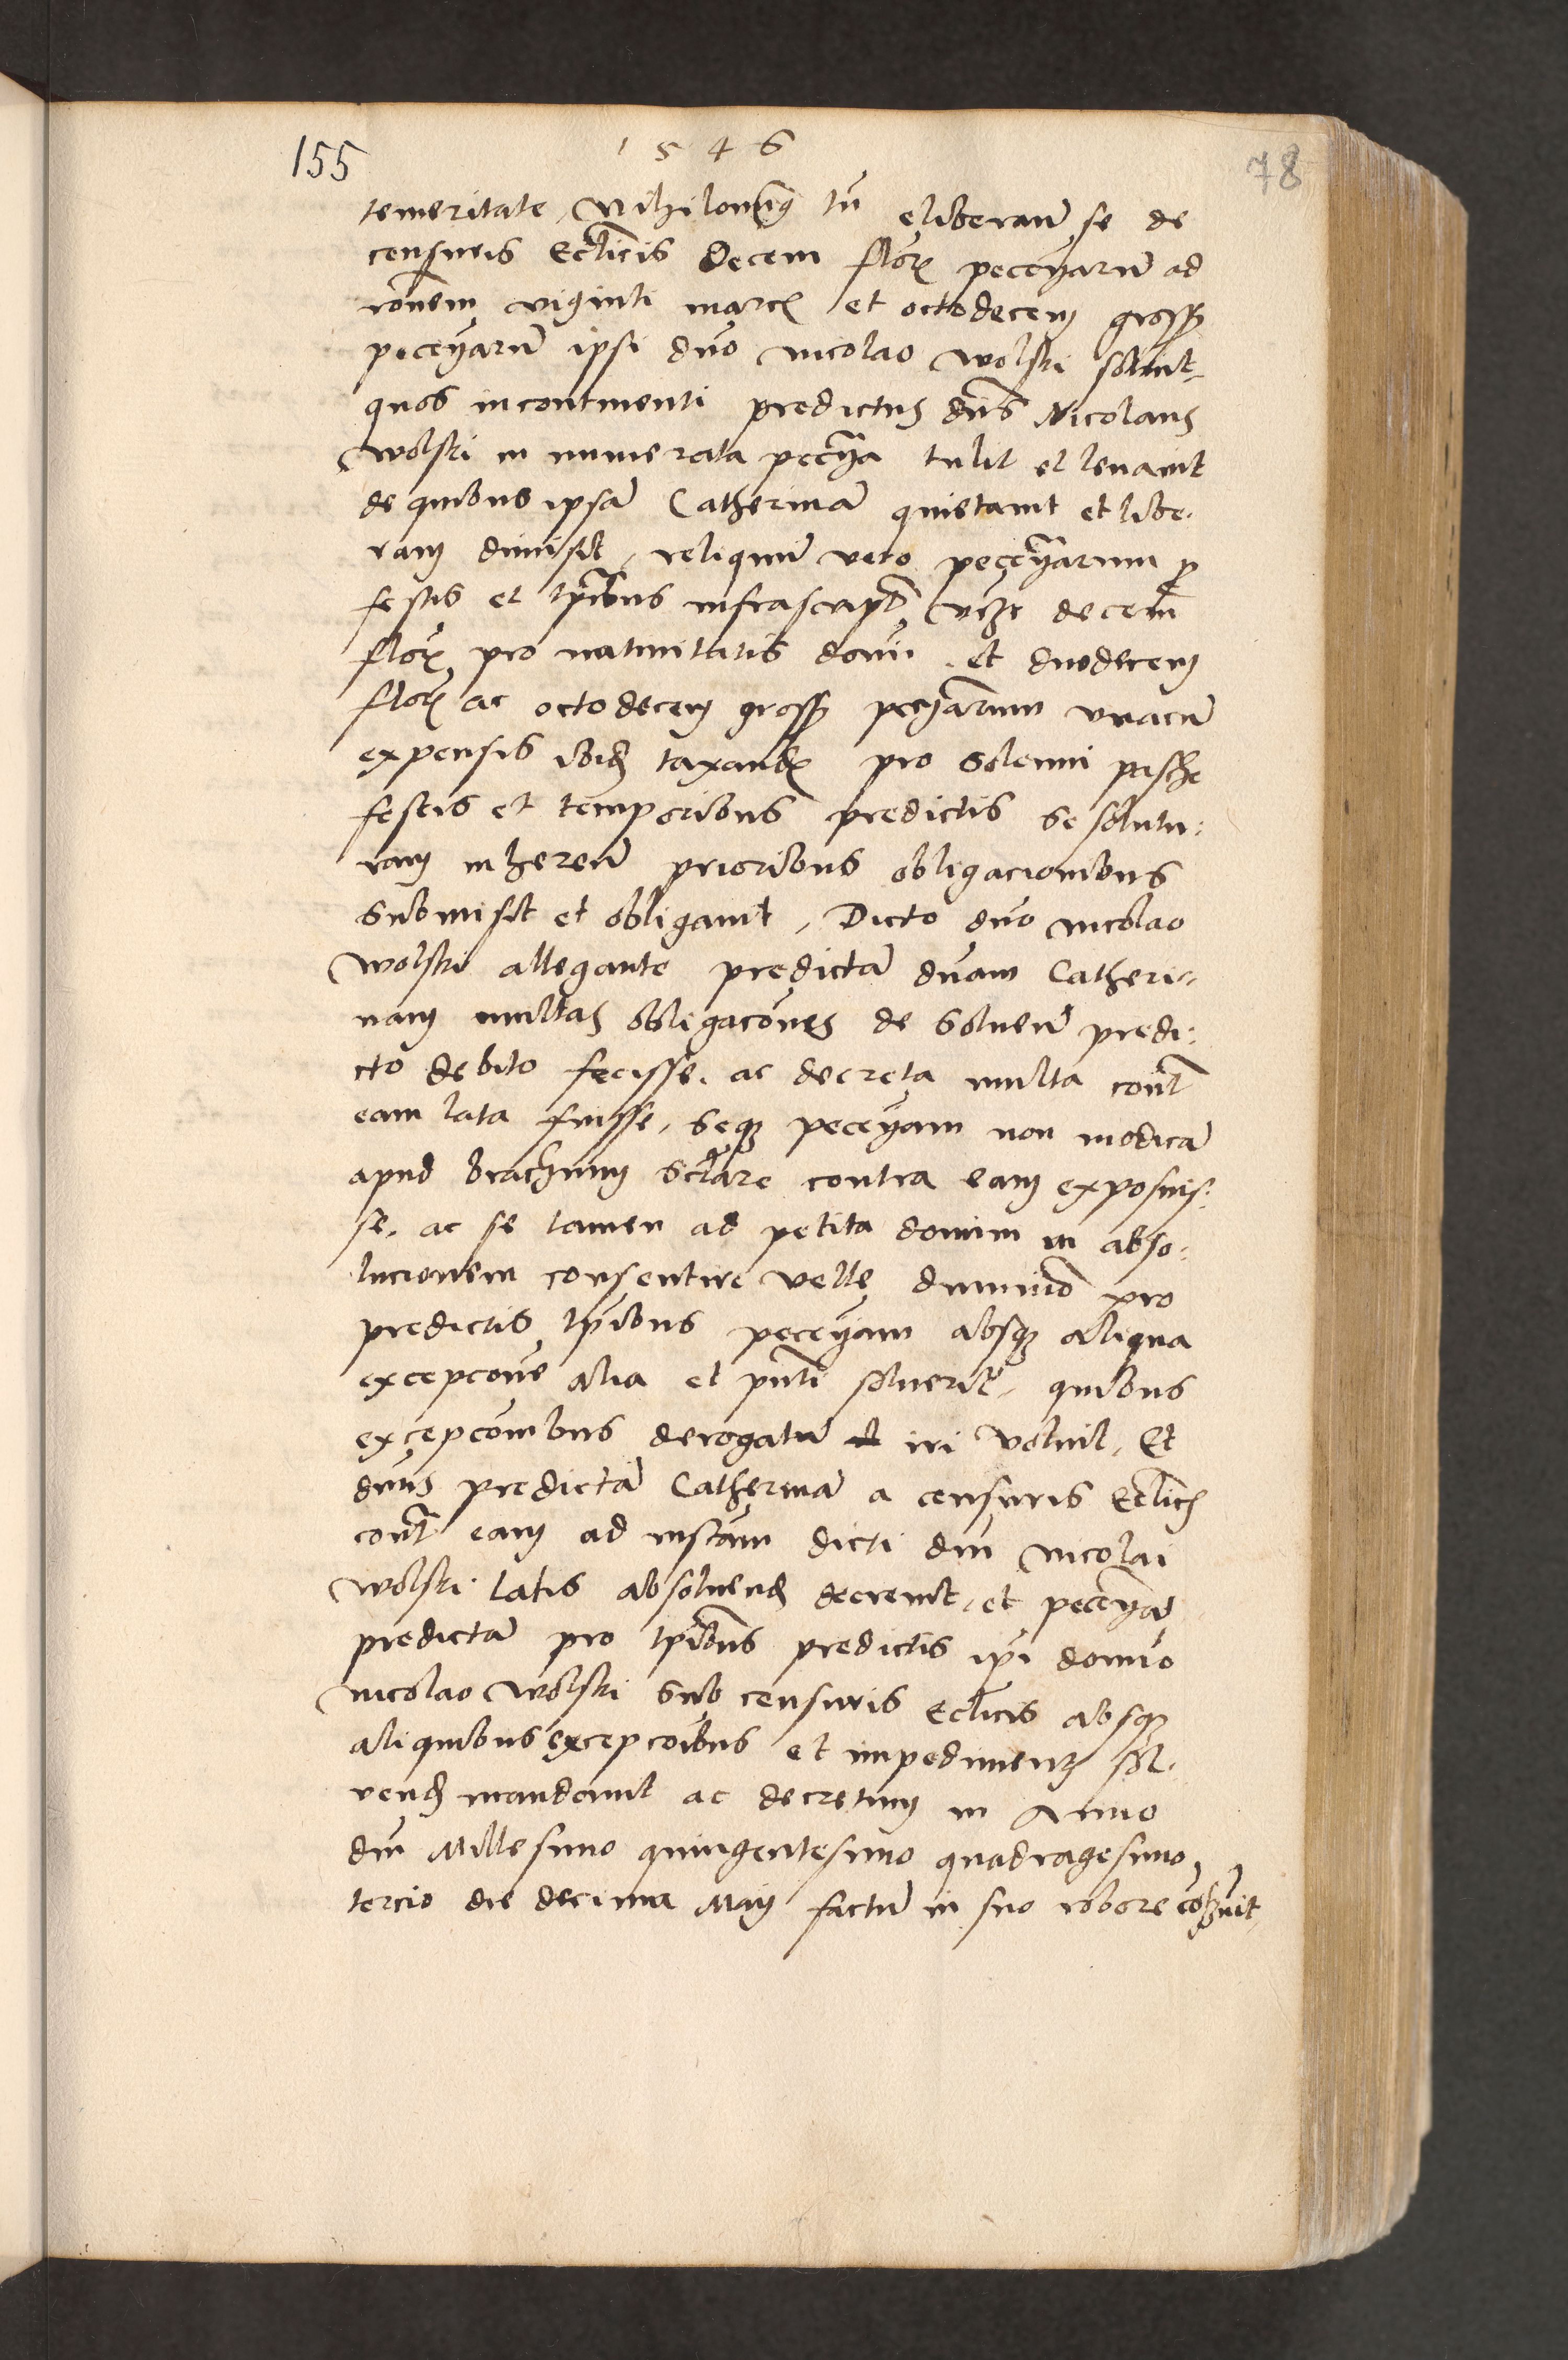 155
1546
78
temeritate, Nihilominus tn̄ eliberan̄ se de
censuris Ecclīcis Decem florꝫ pecc̄yarū ad
rōnem viginti marcꝫ et octodecem gross
pecc̄yarū ipsi dn̄o nicolao wolski soluit
quos incontinenti predictus dn̄s Nicolaus
wolski in numerata pecc̄ya tulit et leuauit
de quibus ipsā Catherinā quietauit et libe-
ram dimisit, reliquū vero pecc̄yarum p
festis et tp̄ibus infrascript vꝫ decem
florꝫ pro natiuitatis domī et duodecem
florꝫ ac octodecem gross pecc̄yarum vnacū
expensis ibid taxandꝫ pro solenni pasche
festis et temporibus predictis se solutu-
ram inheren̄ prioribus obligacionibus
submisit et obligauit, Dicto dn̄o nicolao
wolski allegante predictā dn̄am Catheri-
nam multas obligacōnes de soluen̄ predi-
cto debito fecisse, ac decreta multa cont
eam lata fuisse, seqꝫ pecc̄yam non modicā
apud brachium sc̄lare contra eam exposuis-
se, ac se tamen ad petita domini in abso-
lucionem consentire velle dummō pro
predictis tp̄ibus pecc̄yam absqꝫ aliqua
excepcōne alia et pn̄ti soluerit, quibus
excepcōnibus derogatū iri voluit, Et
dn̄us predictā Catherinā a censuris Ecclīcꝫ
cont eam ad instām dicti dn̄i nicolai
wolski latis absoluend decreuit, et pecc̄yā
predictā pro tp̄ibus predictis ip̄i domīo
nicolao wolski sub censuris Ecclīcis absqꝫ
aliquibus excepcōibus et impedimentꝫ sol-
uend mandauit ac decretum in Anno
dn̄i Millesimo quingentesimo quadragesimo
tercio die decima Maij factū in suo robore cōseruit